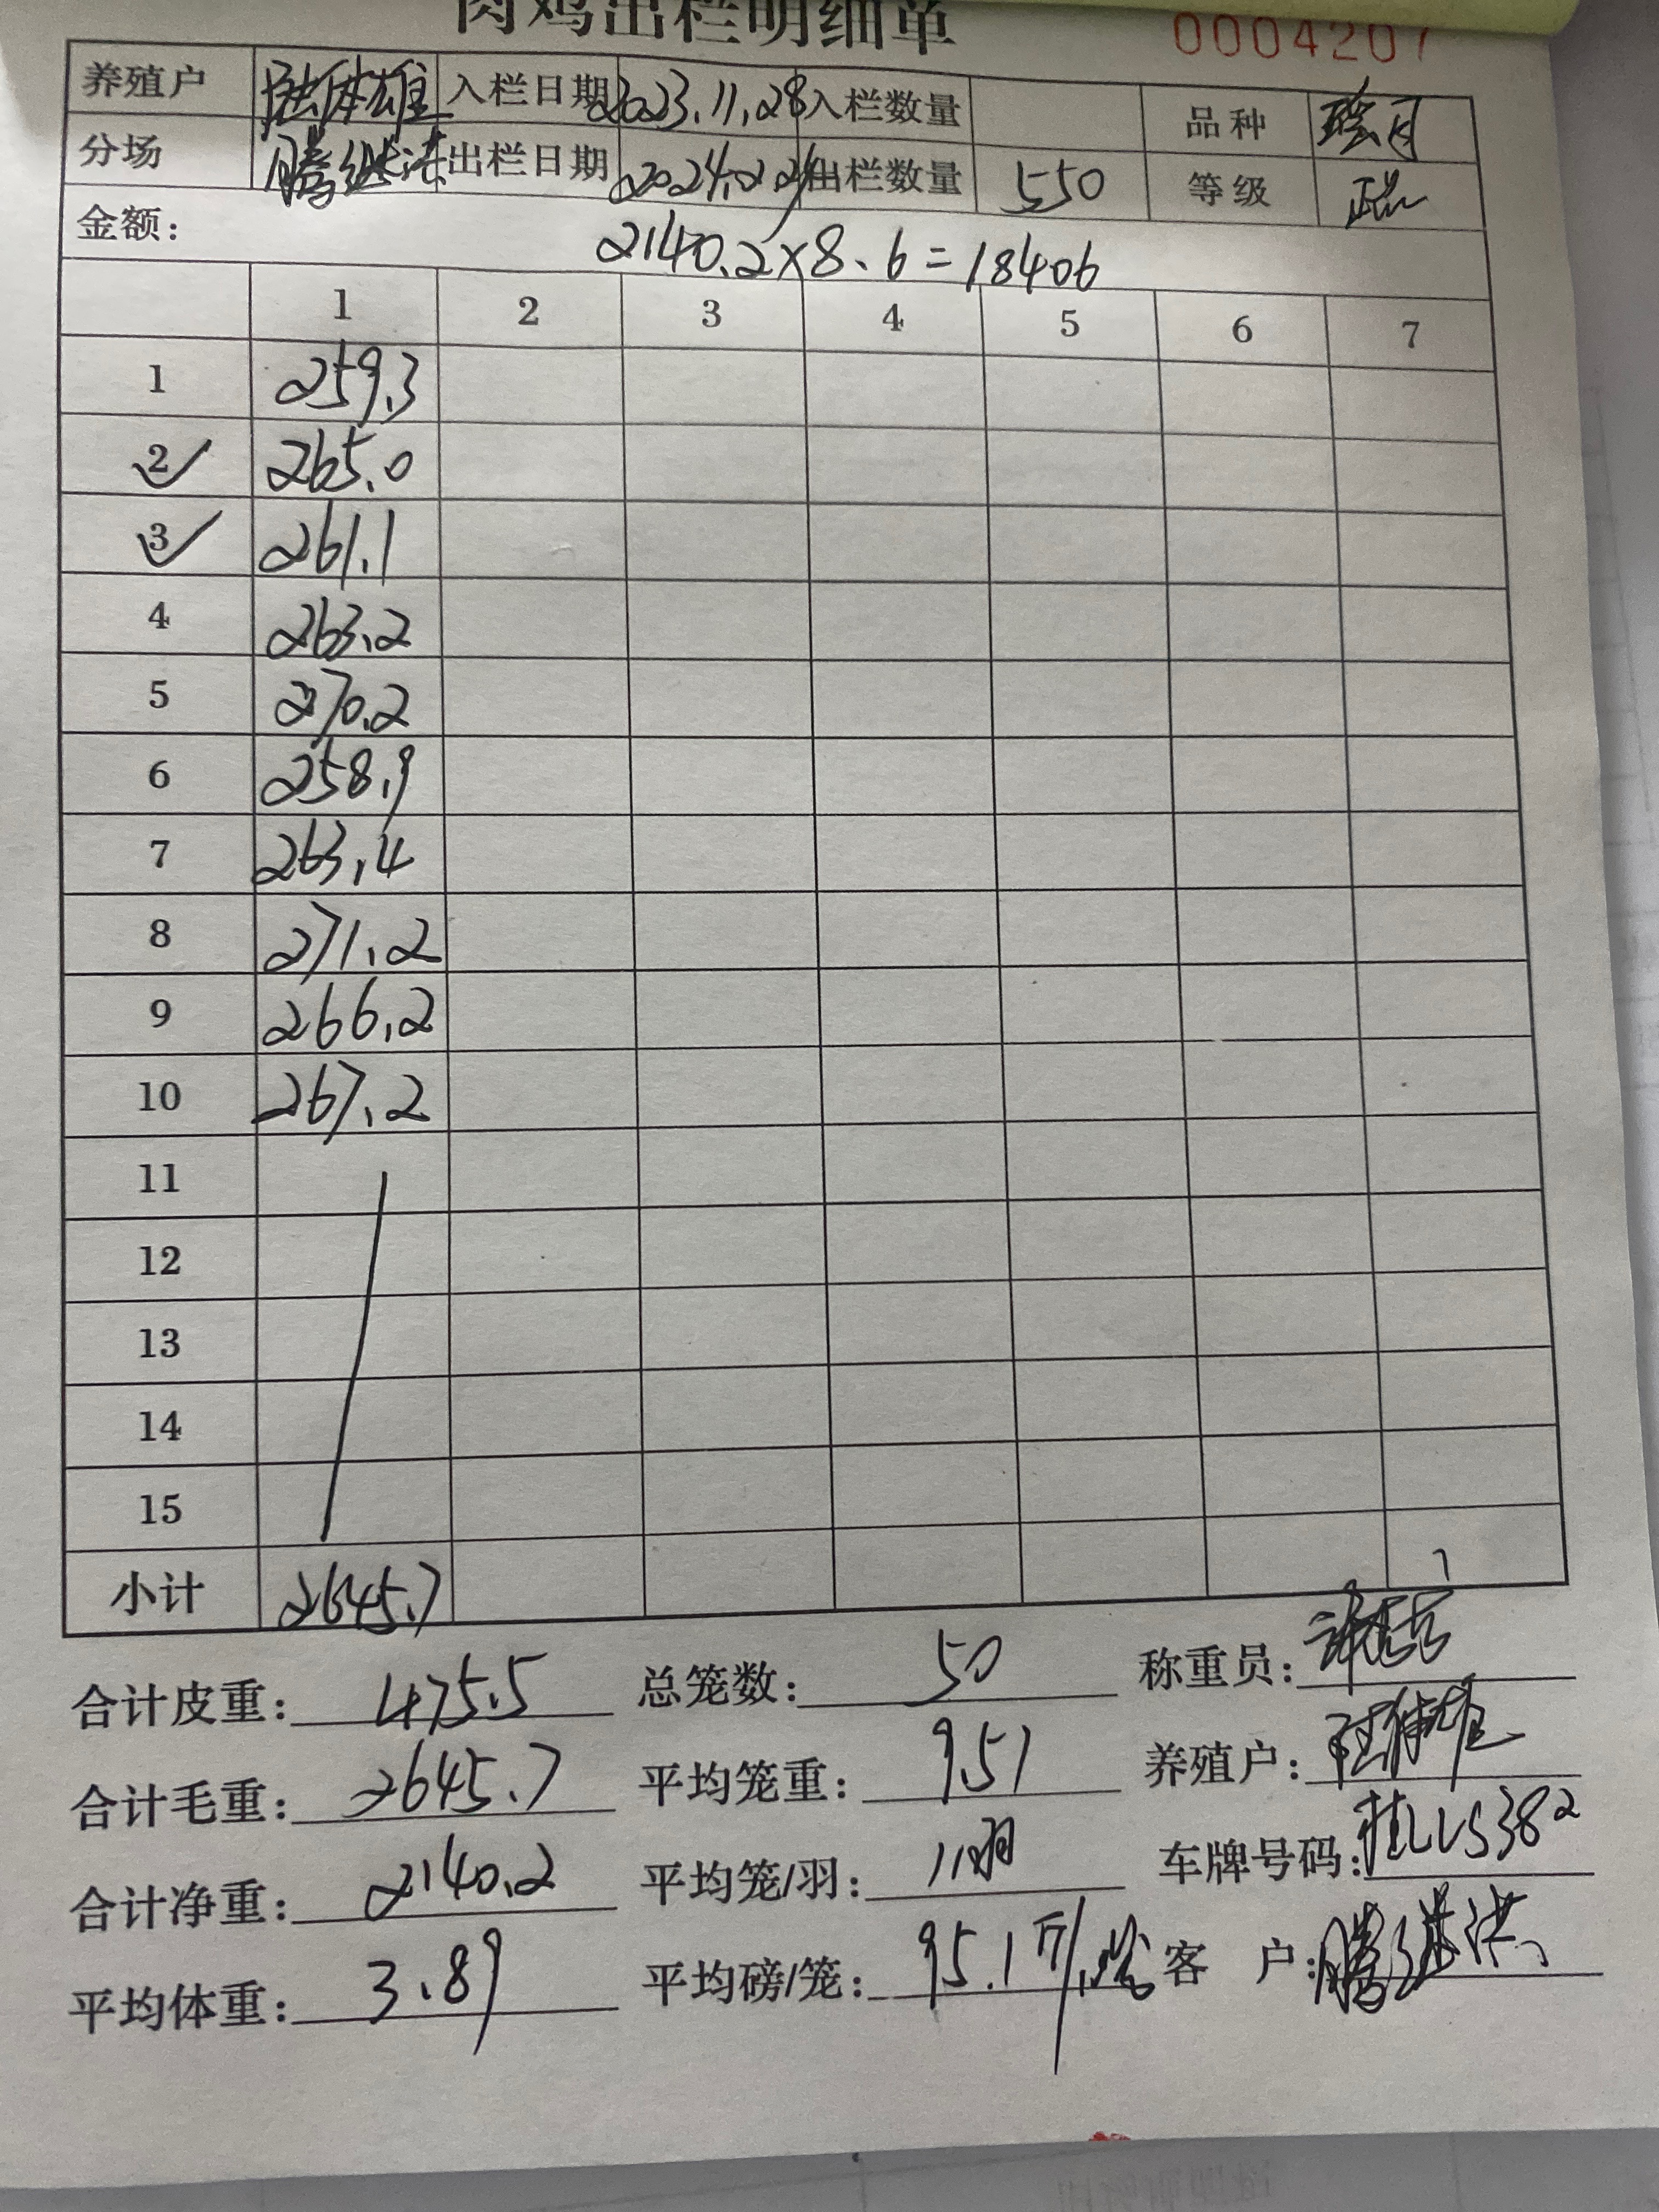 肉鸡出栏明细单 0004207
养殖户 陆体雄 入栏日期 2023.11.28 入栏数量 品种
分场 腾继洪 出栏日期 2024.2.24 出栏数量 550 等级
金额: 2140.2×8.6=18406
1 2 3 4 5 6 7
1 259.3
2 265.0
3 261.1
4 263.2
5 270.2
6 258.9
7 263.4
8 271.2
9 266.2
10 267.2
11
12
13
14
15
小计 2645.7
合计皮重: 475.5 总笼数: 50 称重员:
合计毛重: 2645.7 平均笼重: 9.51 养殖户:
合计净重: 2140.2 平均笼/羽: 11羽 车牌号码:
平均体重: 3.89 平均磅/笼: 95.1斤/笼 客户: 腾继洪